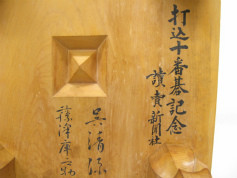 打込十番碁記念
讀賣新聞社
呉清源
藤澤庫之助